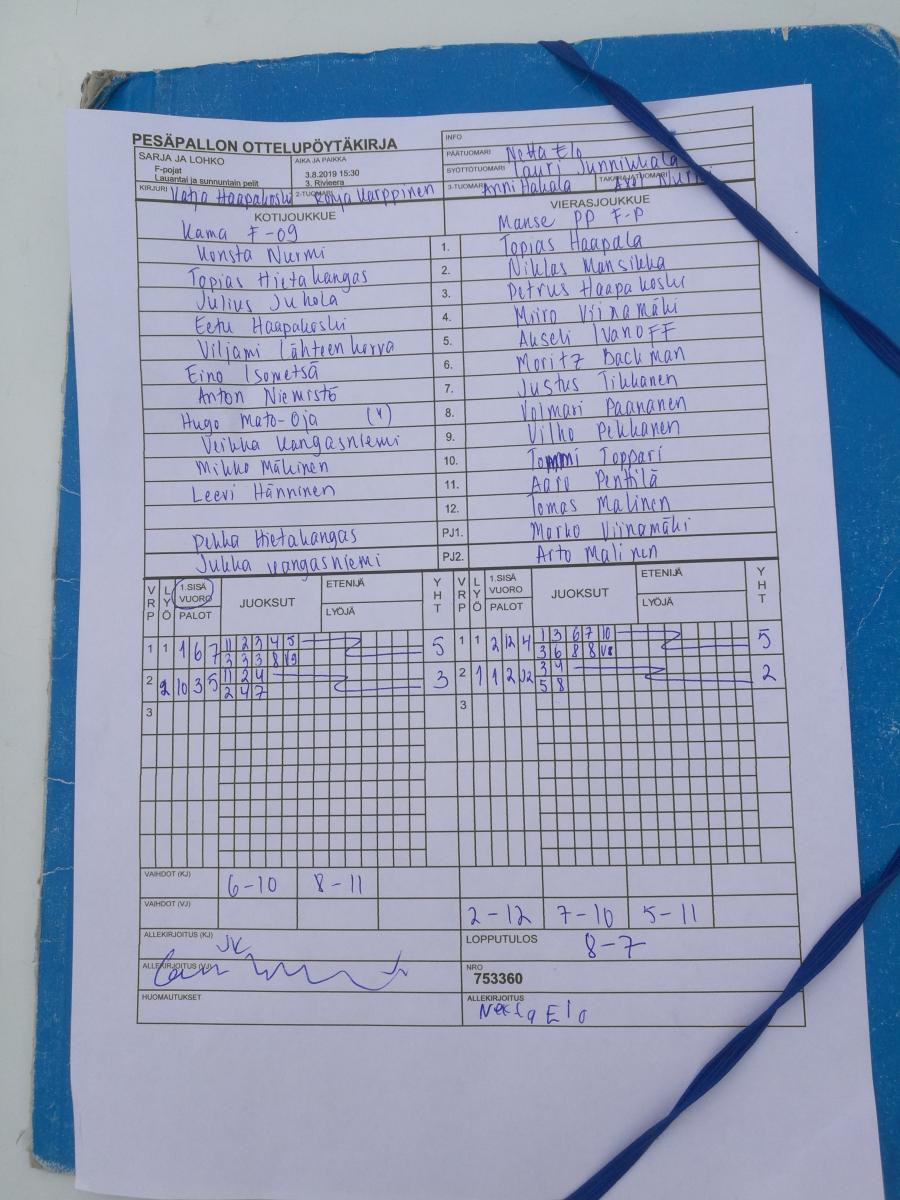 PESÄPALLON OTTELUPÖYTÄKIRJA
INFO
SARJA JA LOHKO
F-pojat
Lauantai ja sunnuntain pelit
AIKA JA PAIKKA
3.8.2019 15:30
3. Rivieera
PÄÄTUOMARI Netta Elo
SYÖTTÖTUOMARI Lauri Junnikkala
KIRJURI Katja Haapakoski 2-TUOMARI Karppinen
3-TUOMARI Anni Hakala TAKARAJATUOMARI Nurmi
KOTIJOUKKUE VIERASJOUKKUE
Kama F-09 Manse PP F-P
Konsta Nurmi 1. Topias Haapala
Topias Hietakangas 2. Niklas Mansikka
Julius Juhola 3. Petrus Haapakoski
Eetu Haapakoski 4. Miiro Viinamäki
Viljami Lähteenkorva 5. Akseli Ivanoff
Eino Isometsä 6. Moritz Backman
Anton Niemistö 7. Justus Tikkanen
Hugo Mato-Oja (4) 8. Volmari Paananen
Veikka Kangasniemi 9. Vilho Pekkanen
Mikko Mäkinen 10. Tommi Toppari
Leevi Hänninen 11. Aaro Penttilä
12. Tomas Malinen
Pekka Hietakangas PJ1. Marko Viinamäki
Jukka Kangasniemi PJ2. Arto Malinen
VRP LYÖ 1.SISÄ VUORO PALOT JUOKSUT ETENIJÄ LYÖJÄ YHT VRP LYÖ 1.SISÄ VUORO PALOT JUOKSUT ETENIJÄ LYÖJÄ YHT
1 1 1 6 7 11 2 3 4 5 5 1 1 2 12 4 1 3 6 7 10 5
3 3 3 8 3 6 8 8
2 2 10 3 5 11 2 4 3 2 1 1 2 3 4 2
2 4 7 5 8
3 3
VAIHDOT (KJ) 6-10 8-11
VAIHDOT (VJ) 2-12 7-10 5-11
ALLEKIRJOITUS (KJ) JK LOPPUTULOS 8-7
ALLEKIRJOITUS (VJ) NRO
753360
HUOMAUTUKSET ALLEKIRJOITUS
Elo